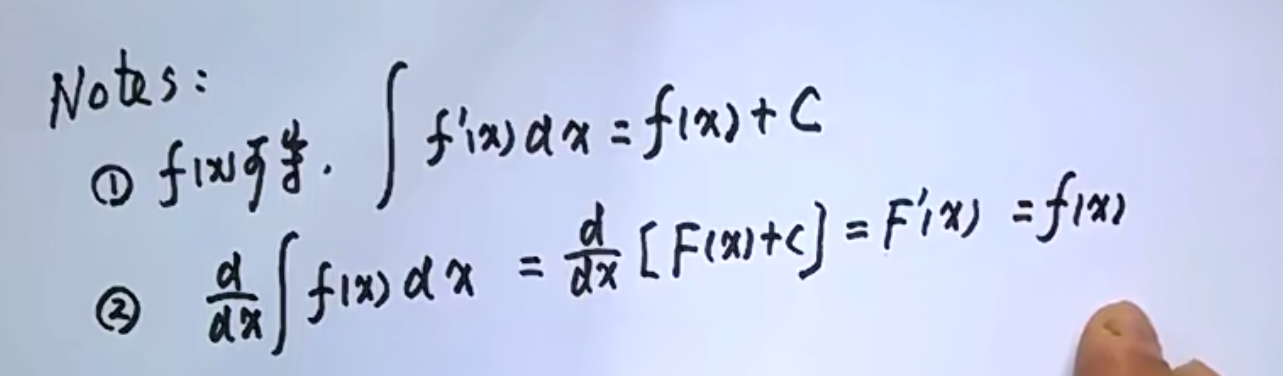 Notes:
① f(x)可导. ∫ f'(x) dx = f(x) + C
② d/dx ∫ f(x) dx = d/dx [F(x)+C] = F'(x) = f(x)